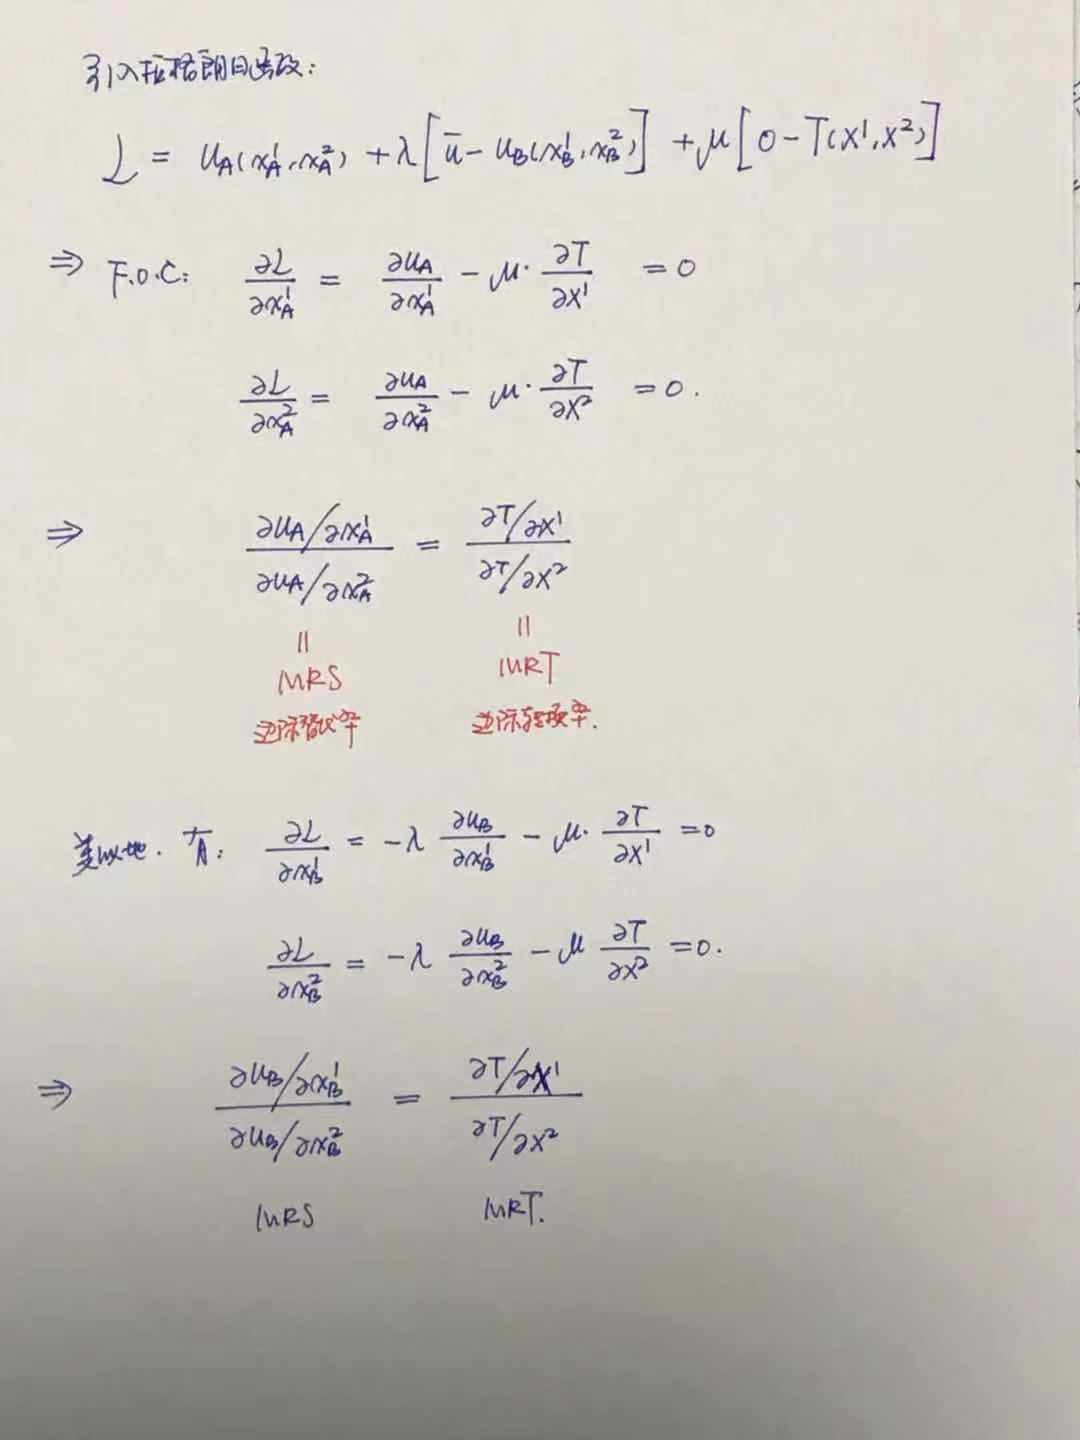 引入拉格朗日函数:
L = u_A(x_A^1, x_A^2) + λ[ū - u_B(x_B^1, x_B^2)] + μ[0 - T(X^1, X^2)]
⇒ F.O.C: ∂L/∂x_A^1 = ∂u_A/∂x_A^1 - μ·∂T/∂X^1 = 0
∂L/∂x_A^2 = ∂u_A/∂x_A^2 - μ·∂T/∂X^2 = 0.
⇒ (∂u_A/∂x_A^1)/(∂u_A/∂x_A^2) = (∂T/∂X^1)/(∂T/∂X^2)
= =
MRS MRT
边际替代率 边际转换率.
类似地. 有: ∂L/∂x_B^1 = -λ ∂u_B/∂x_B^1 - μ·∂T/∂X^1 = 0
∂L/∂x_B^2 = -λ ∂u_B/∂x_B^2 - μ ∂T/∂X^2 = 0.
⇒ (∂u_B/∂x_B^1)/(∂u_B/∂x_B^2) = (∂T/∂X^1)/(∂T/∂X^2)
MRS MRT.